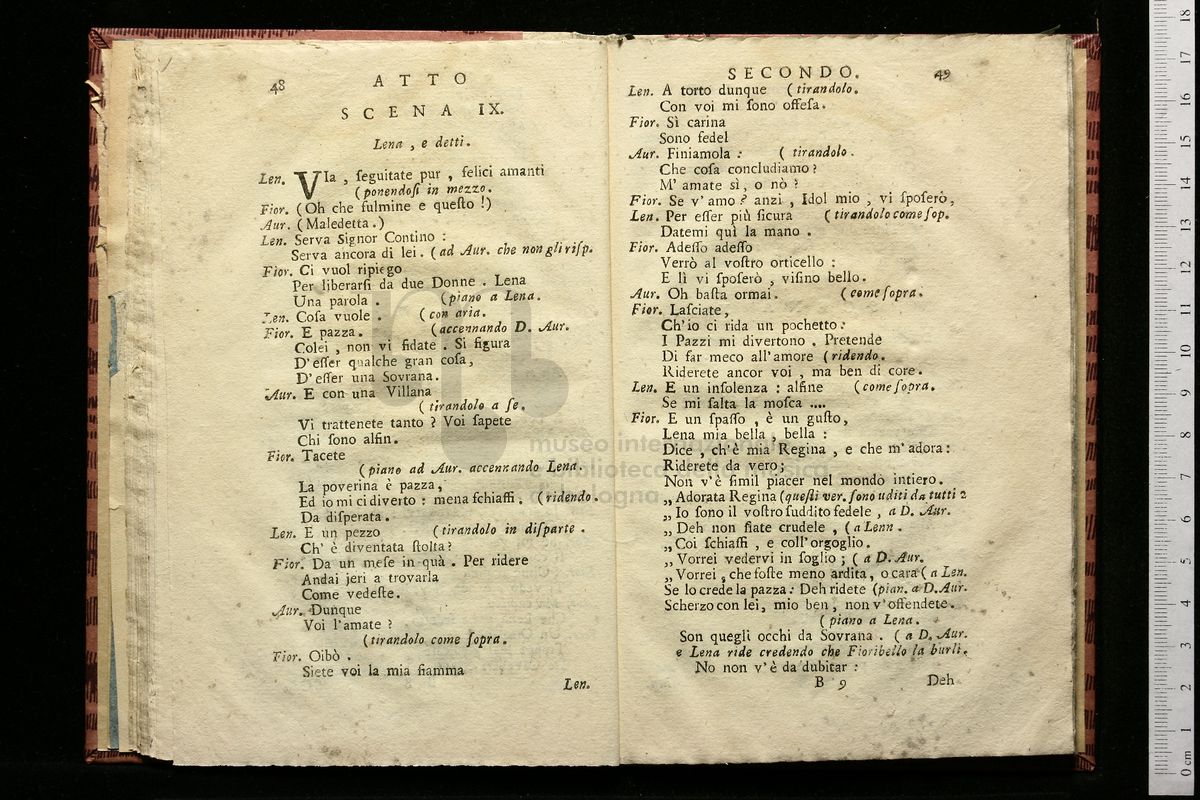 48
ATTO
SCENA IX.
Lena, e detti.
Len. VIa, ſeguitate pur, felici amanti
(ponendoſi in mezzo.
Fior. (Oh che fulmine e queſto!)
Aur. (Maledetta.)
Len. Serva Signor Contino:
Serva ancora di lei. (ad Aur. che non gli riſp.
Fior. Ci vuol ripiego
Per liberarſi da due Donne. Lena
Una parola. (piano a Lena.
Len. Coſa vuole. (con aria.
Fior. E pazza. (accennando D. Aur.
Colei, non vi fidate. Si figura
D'eſſer qualche gran coſa,
D'eſſer una Sovrana.
Aur. E con una Villana
(tirandolo a ſe.
Vi trattenete tanto? Voi ſapete
Chi ſono alfin.
Fior. Tacete
(piano ad Aur. accennando Lena.
La poverina è pazza,
Ed io mi ci diverto: mena ſchiaffi. (ridendo.
Da diſperata.
Len. E un pezzo (tirandolo in diſparte.
Ch' è diventata ſtolta?
Fior. Da un meſe in quà. Per ridere
Andai jeri a trovarla
Come vedeſte.
Aur. Dunque
Voi l'amate?
(tirandolo come ſopra.
Fior. Oibò.
Siete voi la mia fiamma
Len.
SECONDO. 49
Len. A torto dunque (tirandolo.
Con voi mi ſono offeſa.
Fior. Sì carina
Sono fedel
Aur. Finiamola: (tirandolo.
Che coſa concludiamo?
M' amate sì, o nò?
Fior. Se v'amo? anzi, Idol mio, vi ſpoſerò,
Len. Per eſſer più ſicura (tirandolo come ſop.
Datemi quì la mano.
Fior. Adeſſo adeſſo
Verrò al voſtro orticello:
E lì vi ſpoſerò, viſino bello.
Aur. Oh baſta ormai. (come ſopra.
Fior. Laſciate,
Ch'io ci rida un pochetto:
I Pazzi mi divertono. Pretende
Di far meco all'amore (ridendo.
Riderete ancor voi, ma ben di core.
Len. E un inſolenza: alfine (come ſopra.
Se mi ſalta la moſca ....
Fior. E un ſpaſſo, è un guſto,
Lena mia bella, bella:
Dice, ch'è mia Regina, e che m'adora:
Riderete da vero;
Non v'è ſimil piacer nel mondo intiero.
„Adorata Regina (queſti ver. ſono uditi da tutti 2
„Io ſono il voſtro ſuddito fedele, a D. Aur.
„Deh non ſiate crudele, (a Lenn.
„Coi ſchiaffi, e coll'orgoglio.
„Vorrei vedervi in ſoglio; (a D. Aur.
„Vorrei, che foſte meno ardita, o cara (a Len.
Se lo crede la pazza: Deh ridete (pian. a D. Aur.
Scherzo con lei, mio ben, non v'offendete.
(piano a Lena.
Son quegli occhi da Sovrana. (a D. Aur.
e Lena ride credendo che Fioribello la burli.
No non v'è da dubitar:
B 9 Deh